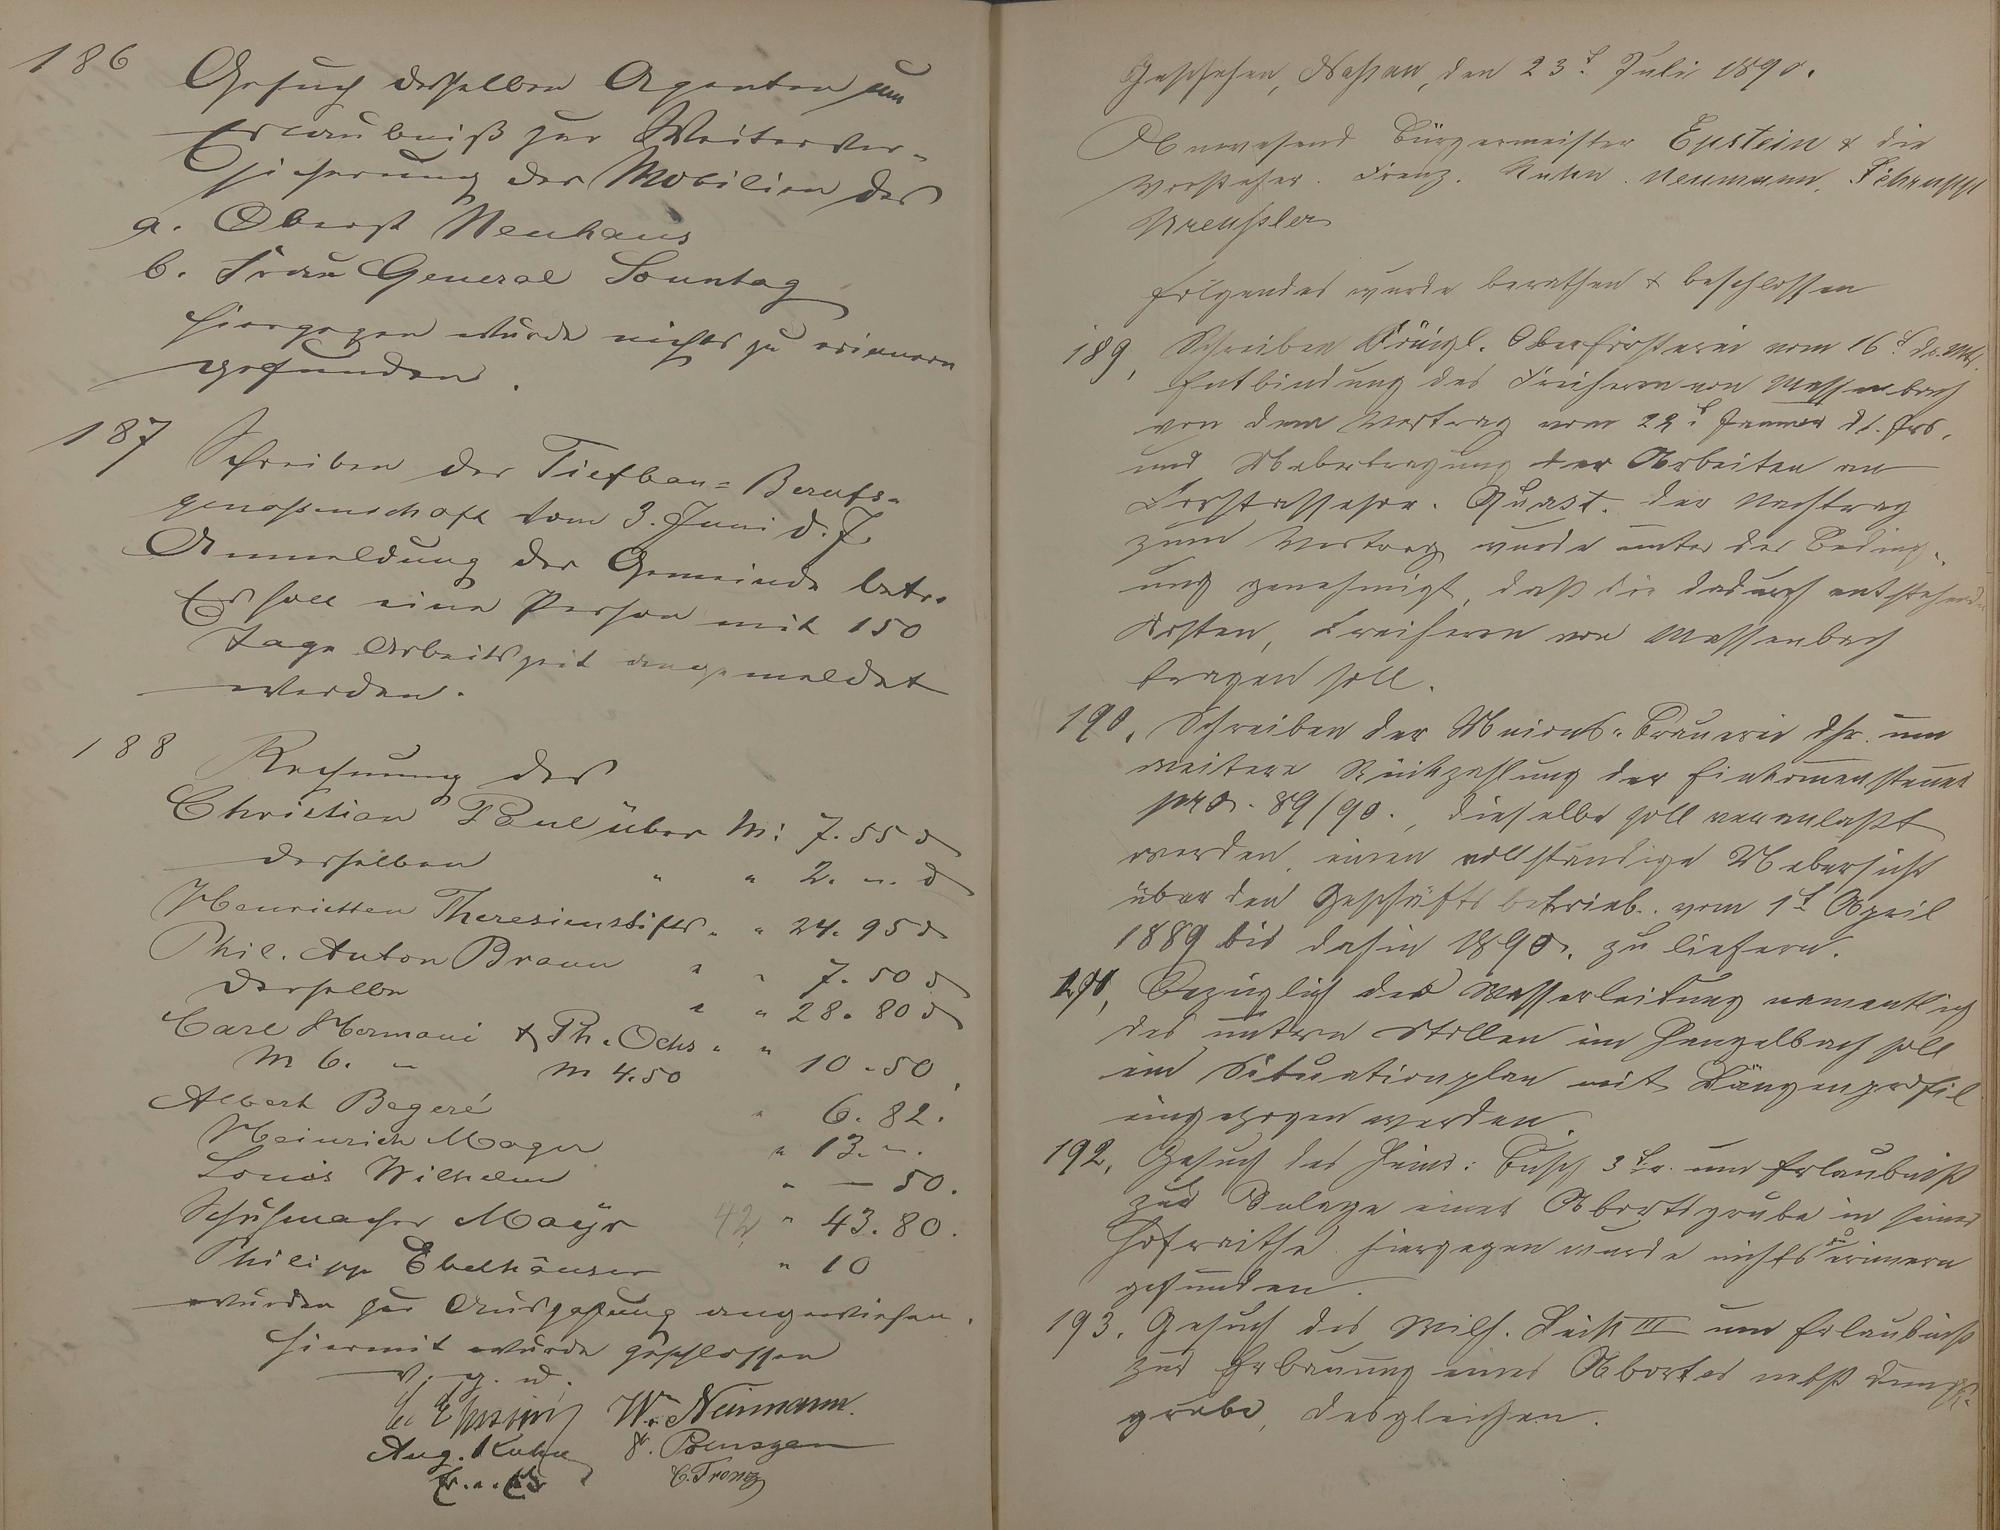 186
Gesuch desselben Agenten um
Erlaubniß zur Weiterver-
sicherung der Mobilien des
a. Oberst Neuhaus
b. Frau General Sonntag
hiergegen wurde nichts zu erinnern
gefunden.
187
Schreiben der Tiefbau-Berufs-
genossenschaft vom 3. Juni d. J.
Anmeldung der Gemeinde betr.
Es soll eine Person mit 150
Tage Arbeitszeit angemeldet
werden.
188
Rechnung des
Christian Paul über M: 7.55 d
desselben " " 2. –. d
Henrietten Theresienstifts " " 24.95 d
Phil. Anton Braun " " 7.50 d
derselbe " " 28.80 d
Carl Hermani & Ph. Ochs " " 10.50
M 6. – M 4.50
Albert Begeré " 6.82.
Heinrich Mager " 13.–.
Louis Wilhelm " — 50.
Schuhmacher Mayr 42 " 43.80.
Philipp Ebelhäuser " 10
wurden zur Auszahlung angewiesen.
Hiermit wurde geschlossen
v. g. u.
W. Neumann.
Aug. Kuhn
C. Trenz
Geschehen, Nassau, den 23t. Juli 1890.
Anwesend Bürgermeister Epstein & die
Vorsteher. Trenz. Kuhn. Neumann.
Folgendes wurde berathen & beschlossen
189, Schreiben Königl. Oberförsterei vom 16t. ds. Mts.
Entbindung des Freiherrn von Massenbach
von dem Vertrag vom 22t. Januar ds. Jrs.
und Uebertragung der Arbeiten an
Forstassessor. Quast. Der Nachtrag
zum Vertrag wurde unter der Beding-
ung genehmigt, daß die dadurch entstehenden
Kosten, Freiherrn von Massenbach
tragen soll.
190. Schreiben der Unions-Brauerei dhr. um
weitere Rückzahlung der Einkommensteuer
pro. 89/90., dieselbe soll veranlaßt
werden, einen vollständige Uebersicht
über den Geschäftsbetrieb. vom 1t April
1889 bis dahin 1890. zu liefern.
191, Bezüglich der Wasserleitung namentlich
des untern Stollen im Hengelbach soll
ein Situationsplan mit Längenprofil
eingezogen werden.
192, Gesuch des Heinr: Busch 3tr. um Erlaubniß
zur Anlage einer Abortsgrube in seiner
Hofraithe. Hiergegen wurde nichts zu erinnern
gefunden.
193. Gesuch des Wilh. III um Erlaubniß
zur Erbauung eines Abortes nebst Dung-
grube, desgleichen.